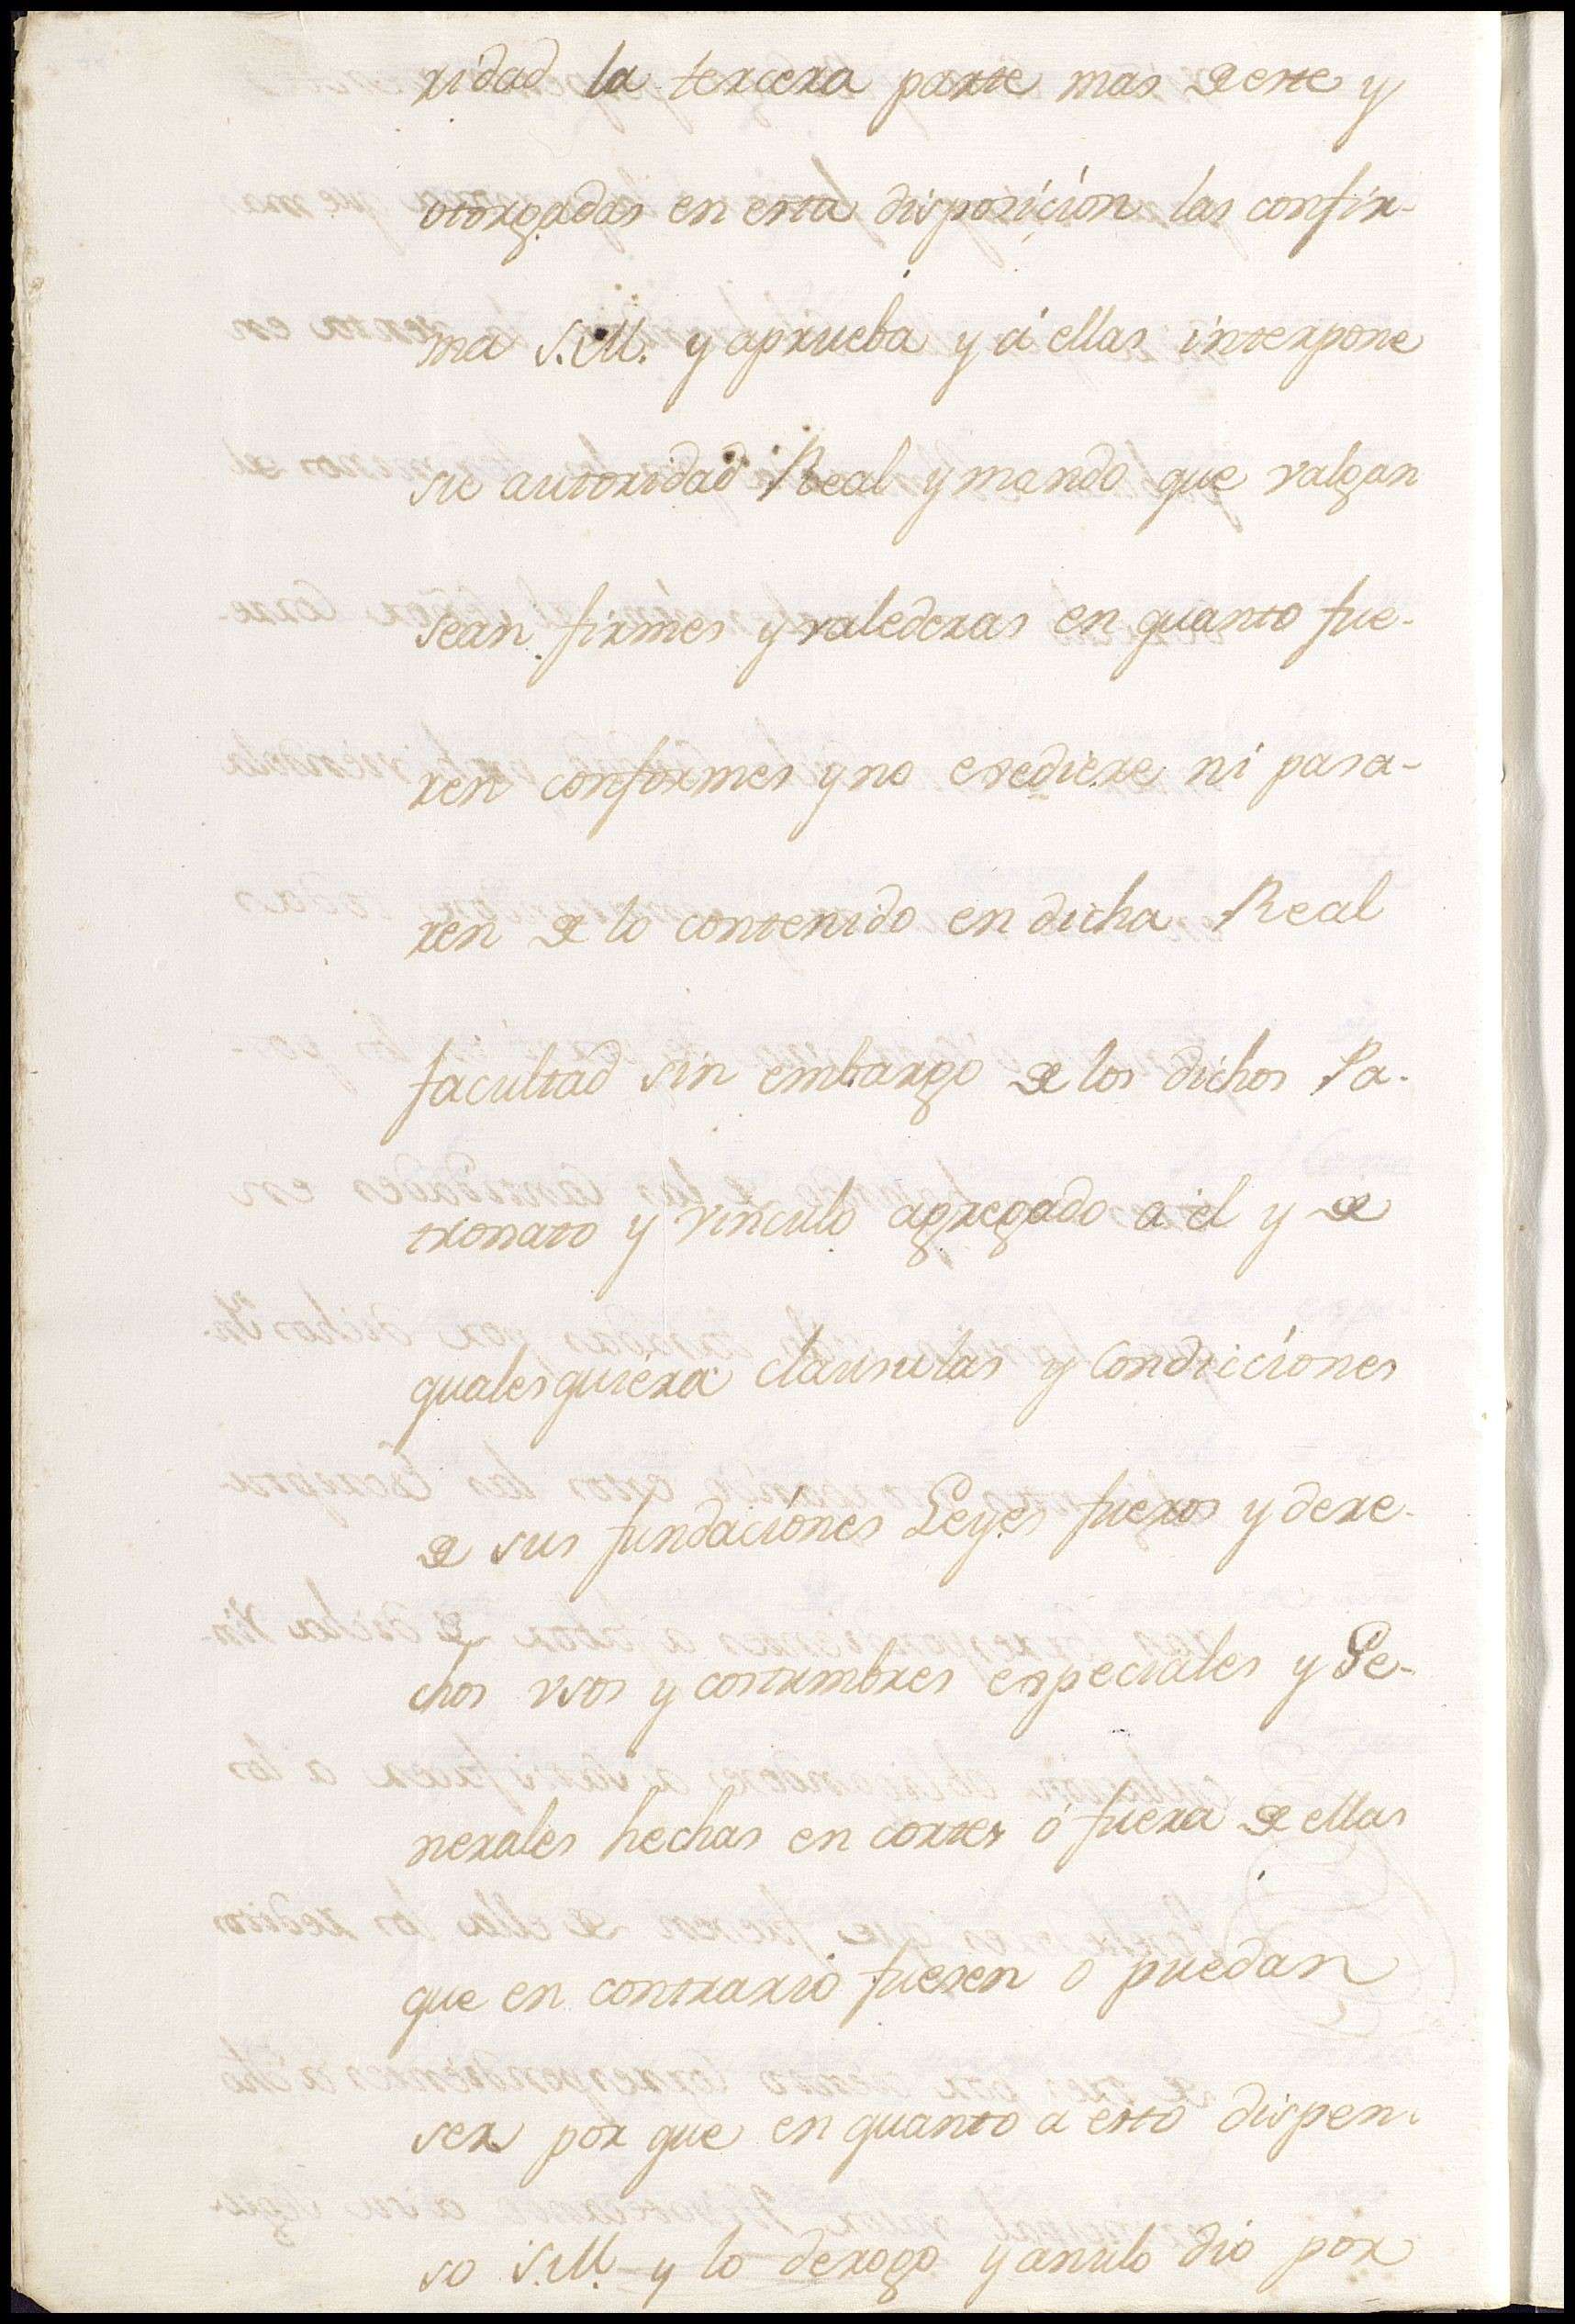 ridad la tercera parte mas de este y
otorgadas en esta disposicion las confir-
ma S.M. y aprueba y á ellas interpone
su autoridad Real y mando que valgan
sean firmes y valederas en quanto fue-
ren conformes y no esediere ni pasa-
ren de lo contenido en dicha Real
facultad sin embargo de los dichos Pa-
tronato y vinculo agregado a él y de
qualesquiera clausulas y Condiciones
de sus fundaciónes Leyes fueros y dere-
chos vsos y costumbres especiales y Ge-
nerales hechas en cortes ó fuera de ellas
que en contrario fuesen o puedan
ser por que en quanto a esto dispen-
so S.M. y lo derogo y anulo dio por